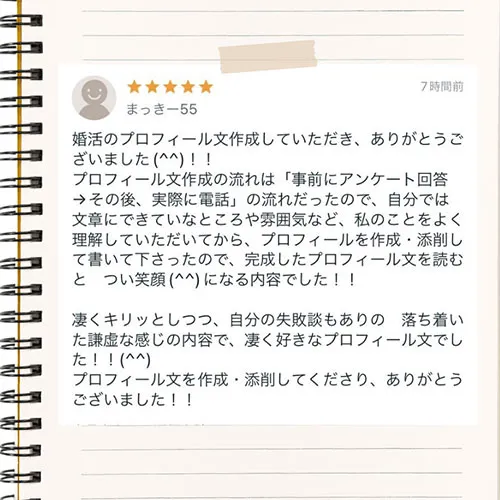 7時間前
まっきー55
婚活のプロフィール文作成していただき、ありがとうご
ざいました(^^)！！
プロフィール文作成の流れは「事前にアンケート回答
→その後、実際に電話」の流れだったので、自分では
文章にできていなところや雰囲気など、私のことをよく
理解していただいてから、プロフィールを作成・添削し
て書いて下さったので、完成したプロフィール文を読む
と　つい笑顔(^^)になる内容でした！！

凄くキリッとしつつ、自分の失敗談もありの　落ち着い
た謙虚な感じの内容で、凄く好きなプロフィール文でし
た！！(^^)
プロフィール文を作成・添削してくださり、ありがとう
ございました！！